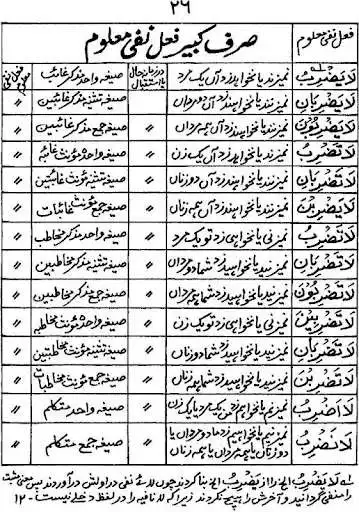 ۲۶
فعل نفی معلوم صرف کبیر فعل نفی معلوم
لَا یَضْرِبُ نمیزند یا نخواہد زد آں یک مرد در زمانہ حال یا استقبال صیغہ واحد مذکر غائب فعل نفی معلوم
لَا یَضْرِبَانِ نمیزنند یا نخواہند زد آں دو مرداں 〃 صیغہ تثنیہ مذکر غائبین 〃
لَا یَضْرِبُوْنَ نمیزنند یا نخواہند زد آں ہمہ مرداں 〃 صیغہ جمع مذکر غائبین 〃
لَا تَضْرِبُ نمیزند یا نخواہد زد آں یک زن 〃 صیغہ واحد مؤنث غائبہ 〃
لَا تَضْرِبَانِ نمیزنند یا نخواہند زد آں دو زناں 〃 صیغہ تثنیہ مؤنث غائبتین 〃
لَا یَضْرِبْنَ نمیزنند یا نخواہند زد آں ہمہ زناں 〃 صیغہ جمع مؤنث غائبات 〃
لَا تَضْرِبُ نمیزنی یا نخواہی زد تو یک مرد 〃 صیغہ واحد مذکر مخاطب 〃
لَا تَضْرِبَانِ نمیزنید یا نخواہید زد شما دو مرداں 〃 صیغہ تثنیہ مذکر مخاطبین 〃
لَا تَضْرِبُوْنَ نمیزنید یا نخواہید زد شما ہمہ مرداں 〃 صیغہ جمع مذکر مخاطبین 〃
لَا تَضْرِبِیْنَ نمیزنی یا نخواہی زد تو یک زن 〃 صیغہ واحد مؤنث مخاطبہ 〃
لَا تَضْرِبَانِ نمیزنید یا نخواہید زد شما دو زناں 〃 صیغہ تثنیہ مؤنث مخاطبتین 〃
لَا تَضْرِبْنَ نمیزنید یا نخواہید زد شما ہمہ زناں 〃 صیغہ جمع مؤنث مخاطبات 〃
لَا اَضْرِبُ نمیزنم یا نخواہم زد من یک مرد یا یک زن 〃 صیغہ واحد متکلم 〃
لَا نَضْرِبُ نمیزنیم یا نخواہیم زد ما دو مرداں یا دو زناں یا ہمہ مرداں یا ہمہ زناں 〃 صیغہ جمع متکلم 〃
؎۱ لَا یَضْرِبُ الخ را از یَضْرِبُ الخ بنا کردند چوں لائے نفی در اولش در آوردند پس معنی مثبت
را منفی گردانید و آخرش را ہیچ نکردند زیرا کہ لا نافیہ را در لفظ دخلے نیست ۱۲